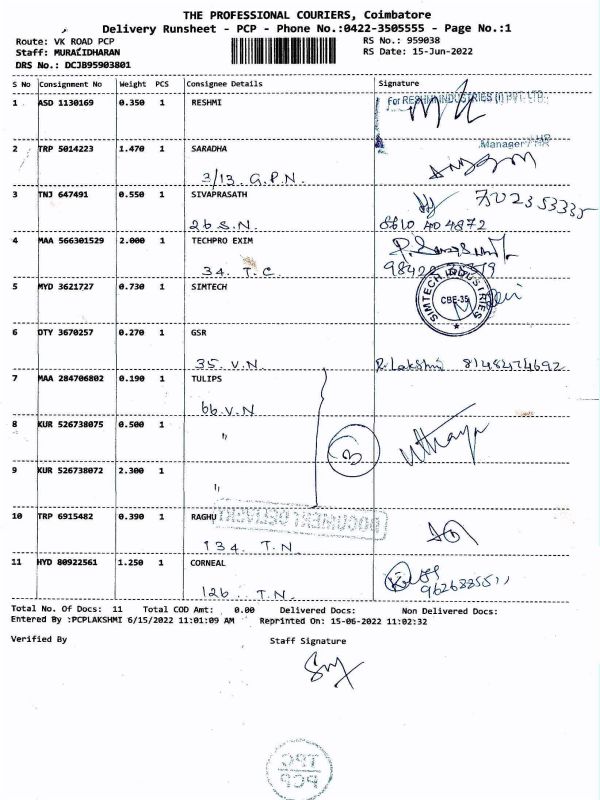 THE PROFESSIONAL COURIERS, Coimbatore
Delivery Runsheet - PCP - Phone No.:0422-3505555 - Page No.:1
Route: VK ROAD PCP RS No.: 959038
Staff: MURALIDHARAN RS Date: 15-Jun-2022
DRS No.: DCJB95903801
S No Consignment No Weight PCS Consignee Details Signature
1 ASD 1130169 0.350 1 RESHMI For RESHMI INDUSTRIES (I) PVT. LTD.
Manager / HR
2 TRP 5014223 1.470 1 SARADHA
3/13. G.P.N.
3 TNJ 647491 0.550 1 SIVAPRASATH
26 S.N.
4 MAA 566301529 2.000 1 TECHPRO EXIM
34. T.C.
5 MYD 3621727 0.730 1 SIMTECH SIMTECH INDUSTRIES CBE-35
6 OTY 3670257 0.270 1 GSR
35. V.N. R. Lakshmi 8148474692
7 MAA 284706802 0.190 1 TULIPS
66 V.N
8 KUR 526738075 0.500 1 "
3 uthaya
9 KUR 526738072 2.300 1 "
10 TRP 6915482 0.390 1 RAGHU DOCUMENT DELIVERY
134. T.N.
11 HYD 80922561 1.250 1 CORNEAL
126. T.N.
Total No. Of Docs: 11 Total COD Amt: 0.00 Delivered Docs: Non Delivered Docs:
Entered By :PCPLAKSHMI 6/15/2022 11:01:09 AM Reprinted On: 15-06-2022 11:02:32
Verified By Staff Signature
TPC
PCP